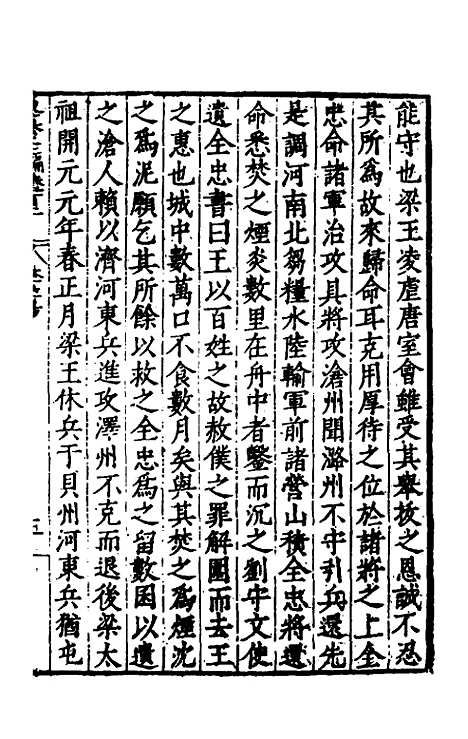 能守也梁王凌虐唐室會雖受其舉拔之恩誠不忍
其所爲故來歸命耳克用厚待之位於諸將之上全
忠命諸軍治攻具將攻滄州聞潞州不守引兵還先
是調河南北芻糧水陸輸軍前諸營山積全忠將還
命悉焚之煙炎數里在舟中者鑿而沉之劉守文使
遺全忠書曰王以百姓之故赦僕之罪解圍而去王
之惠也城中數萬口不食數月矣與其焚之爲煙沈
之爲泥願乞其所餘以救之全忠爲之留數囷以遺
之滄人賴以濟河東兵進攻澤州不克而退後梁太
祖開元元年春正月梁王休兵于貝州河東兵猶屯
五